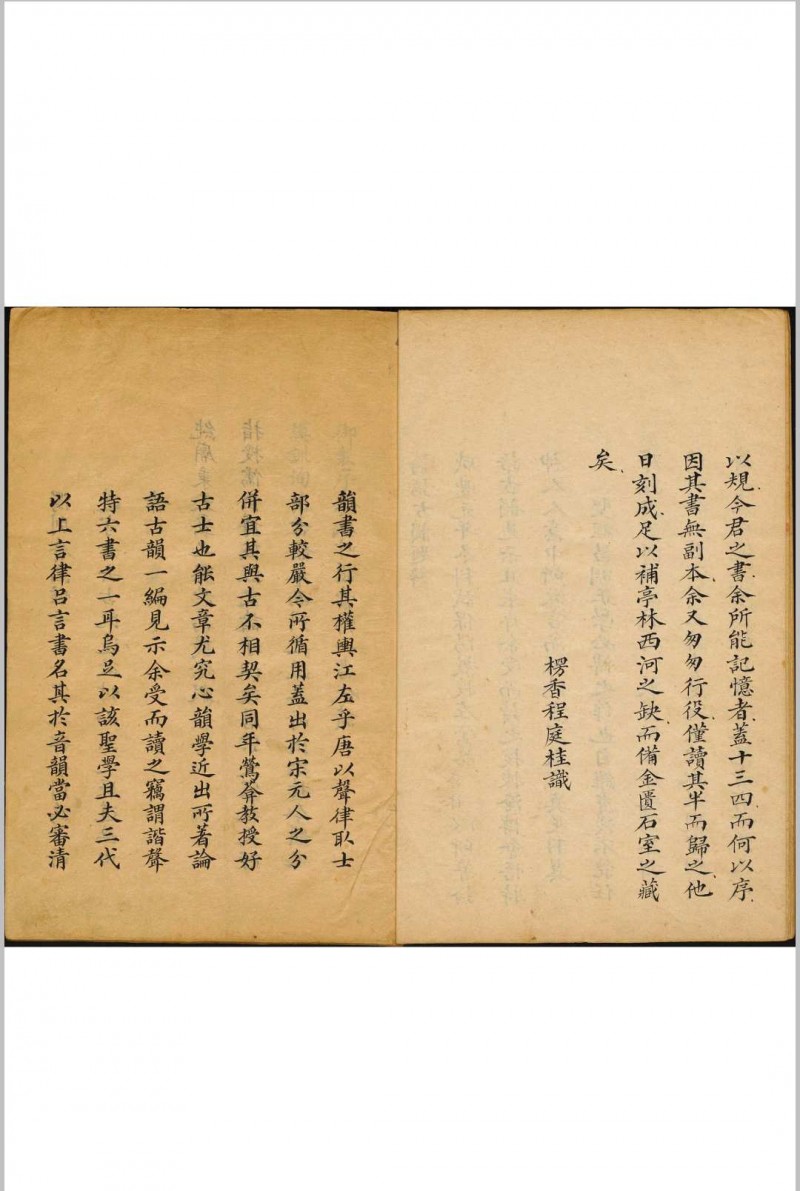 以規今君之書余所能記憶者蓋十三四而何以序
因其書無副本余又匆匆行役僅讀其半而歸之他
日刻成足以補亭林西河之缺而備金匱石室之藏
矣
楞香程庭桂識
韻書之行其權輿江左乎唐以聲律取士
部分較嚴今所循用蓋出於宋元人之分
併宜其與古不相契矣同年鶯齋教授好
古士也能文章尤究心韻學近出所著論
語古韻一編見示余受而讀之竊謂諧聲
特六書之一耳烏足以該聖學且夫三代
以上言律呂言書名其於音韻當必審清